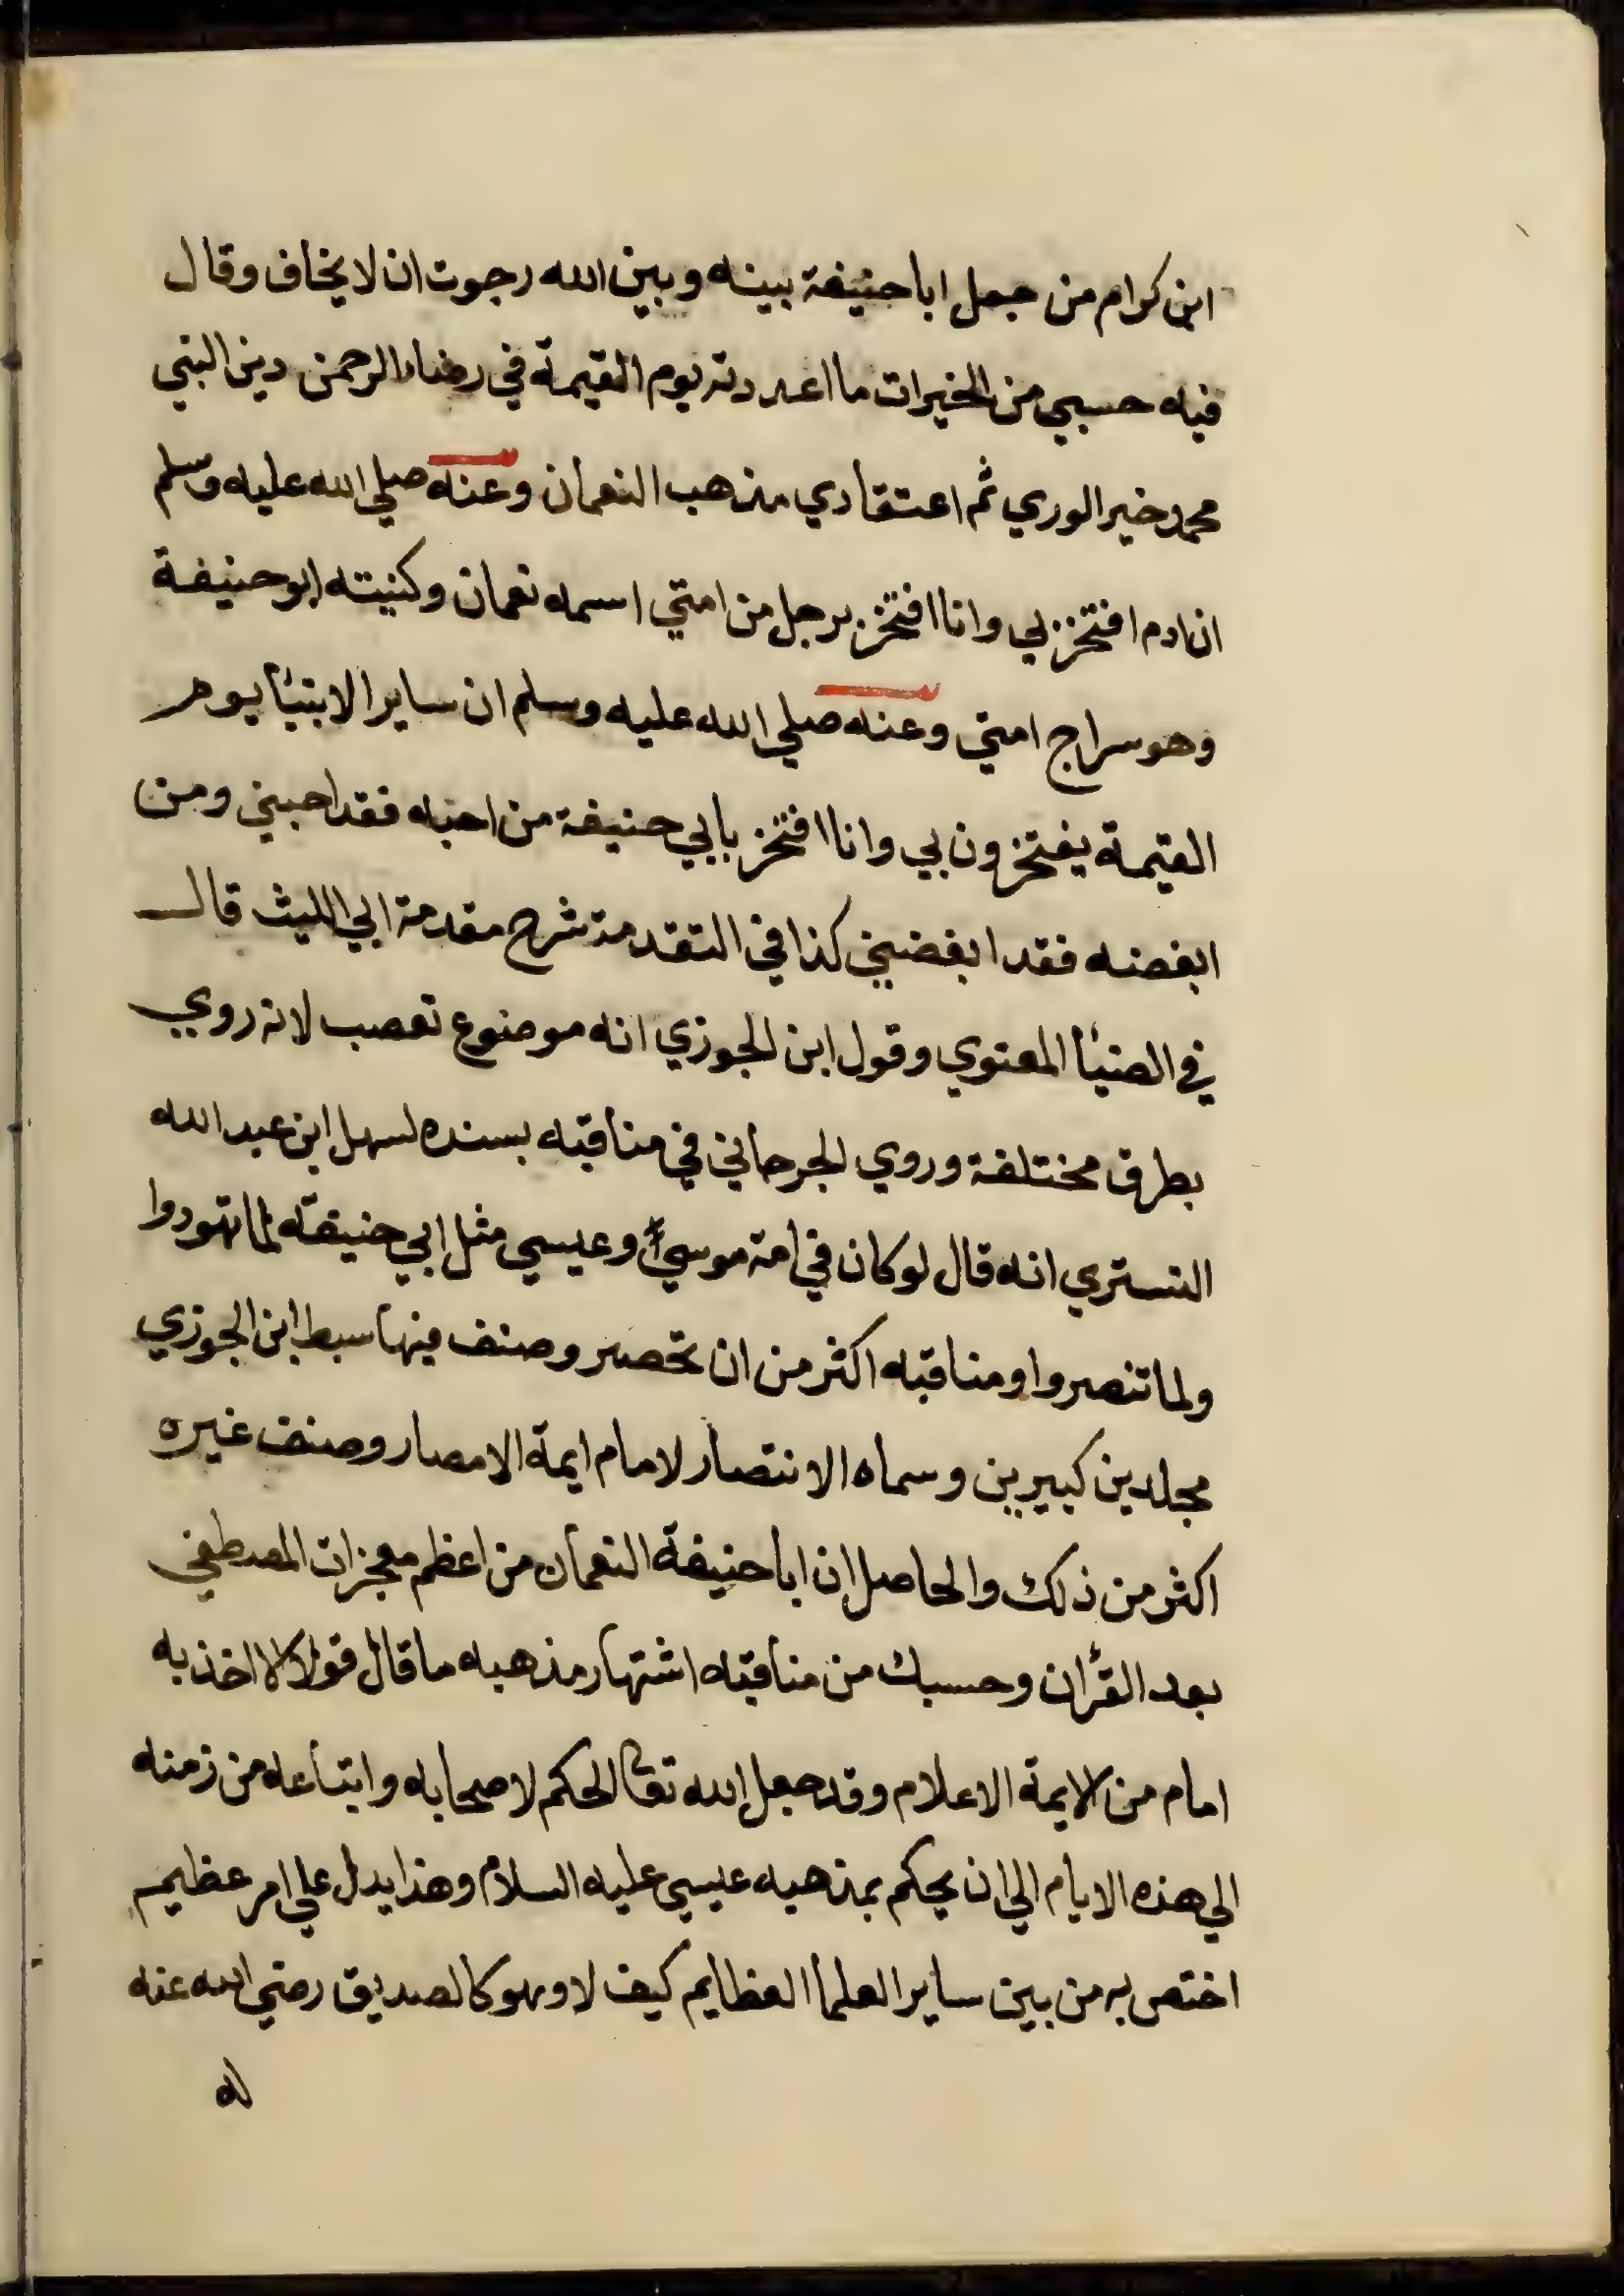 ابن كرام من جعل ابا حنيفة بينه وبين الله رجوت ان لا يخاف وقال
فيه حسبي من الخيرات ما اعددته يوم القيمة في رضاء الرحمن دين النبي
محمد خير الوري ثم اعتقادي مذهب النعمان وعنه صلي الله عليه وسلم
ان ادم افتخر بي وانا افتخر برجل من امتي اسمه نعمان وكنيته ابو حنيفة
وهو سراج امتي وعنه صلي الله عليه وسلم ان ساير الانبيأ يوم
القيمة يفتخرون بي وانا افتخر بابي حنيفة من احبه فقد احبني ومن
ابغضه فقد ابغضني كذا في التقدمة شرح مقدمة ابي الليث قال
في الضيأ المعنوي وقول ابن الجوزي انه موضوع تعصب لانه روي
بطرق مختلفة وروي الجرجاني في مناقبه بسنده لسهل ابن عبد الله
التستري انه قال لو كان في امة موسي وعيسي مثل ابي حنيفة لما تهودوا
ولما تنصروا ومناقبه اكثر من ان تحصر وصنف فيها سبط ابن الجوزي
مجلدين كبيرين وسماه الانتصار لامام ايمة الامصار وصنف غيره
اكثر من ذلك والحاصل ان ابا حنيفة النعمان من اعظم معجزات المصطفي
بعد القرأن وحسبك من مناقبه اشتهار مذهبه ما قال قولا الا اخذ به
امام من الايمة الاعلام وقد جعل الله تعا الحكم لاصحابه واتباعه من زمنه
الي هذه الايام الي ان يحكم بمذهبه عيسي عليه السلام وهذا يدل علي امر عظيم
اختص به من بين ساير العلمأ العظايم كيف لا وهو كالصديق رضي الله عنه
له